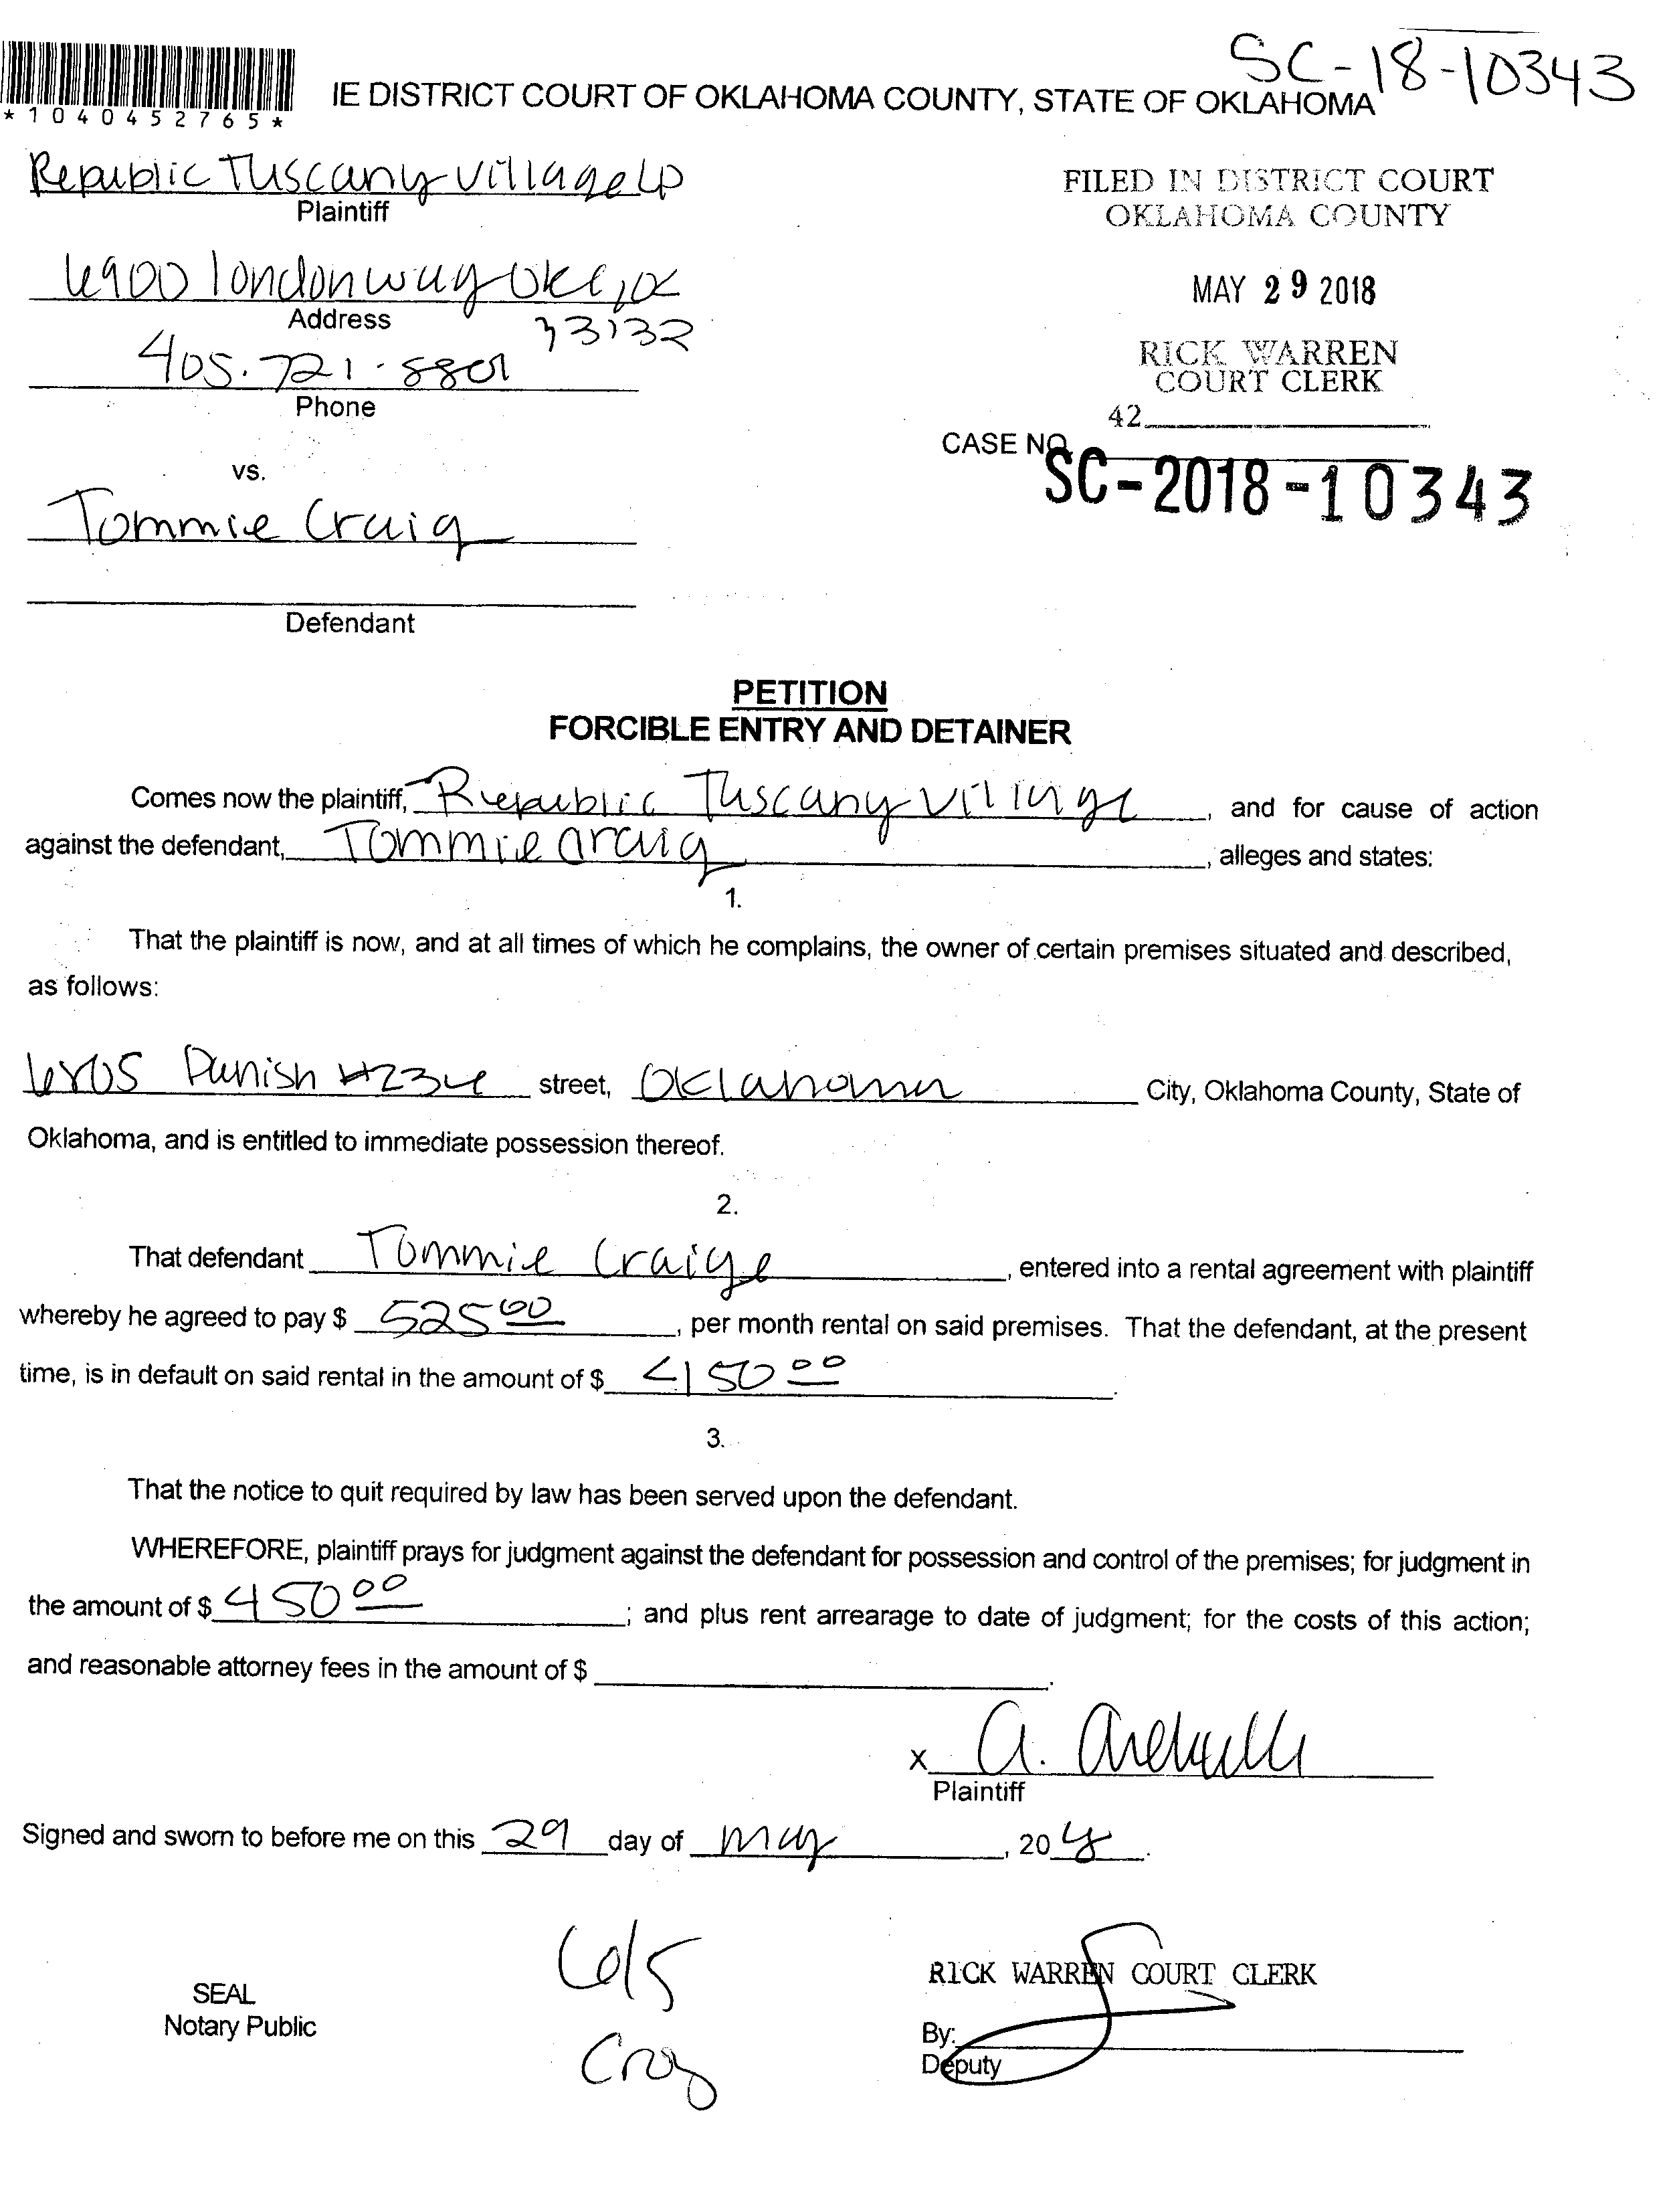 SC-18-10343
IE DISTRICT COURT OF OKLAHOMA COUNTY, STATE OF OKLAHOMA
*1040452765*
Republic Tuscany Village LP
Plaintiff
FILED IN DISTRICT COURT
OKLAHOMA COUNTY
6900 london way OKC, OK
Address
73132
MAY 29 2018
405.721.8801
Phone
RICK WARREN
COURT CLERK
42
CASE NO.
SC-2018-10343
vs.
Tommie Craig
Defendant
PETITION
FORCIBLE ENTRY AND DETAINER
Comes now the plaintiff, Republic Tuscany Village, and for cause of action
against the defendant, Tommie Craig, alleges and states:
1.
That the plaintiff is now, and at all times of which he complains, the owner of certain premises situated and described,
as follows:
#234 street, Oklahoma City, Oklahoma County, State of
Oklahoma, and is entitled to immediate possession thereof.
2.
That defendant Tommie Craige, entered into a rental agreement with plaintiff
whereby he agreed to pay $ 525 00, per month rental on said premises. That the defendant, at the present
time, is in default on said rental in the amount of $ 450 00.
3.
That the notice to quit required by law has been served upon the defendant.
WHEREFORE, plaintiff prays for judgment against the defendant for possession and control of the premises; for judgment in
the amount of $ 450 00; and plus rent arrearage to date of judgment; for the costs of this action;
and reasonable attorney fees in the amount of $ .
x A.
Plaintiff
Signed and sworn to before me on this 29 day of May, 20 18.
6/5
SEAL
Notary Public
RICK WARREN COURT CLERK
By:
Deputy